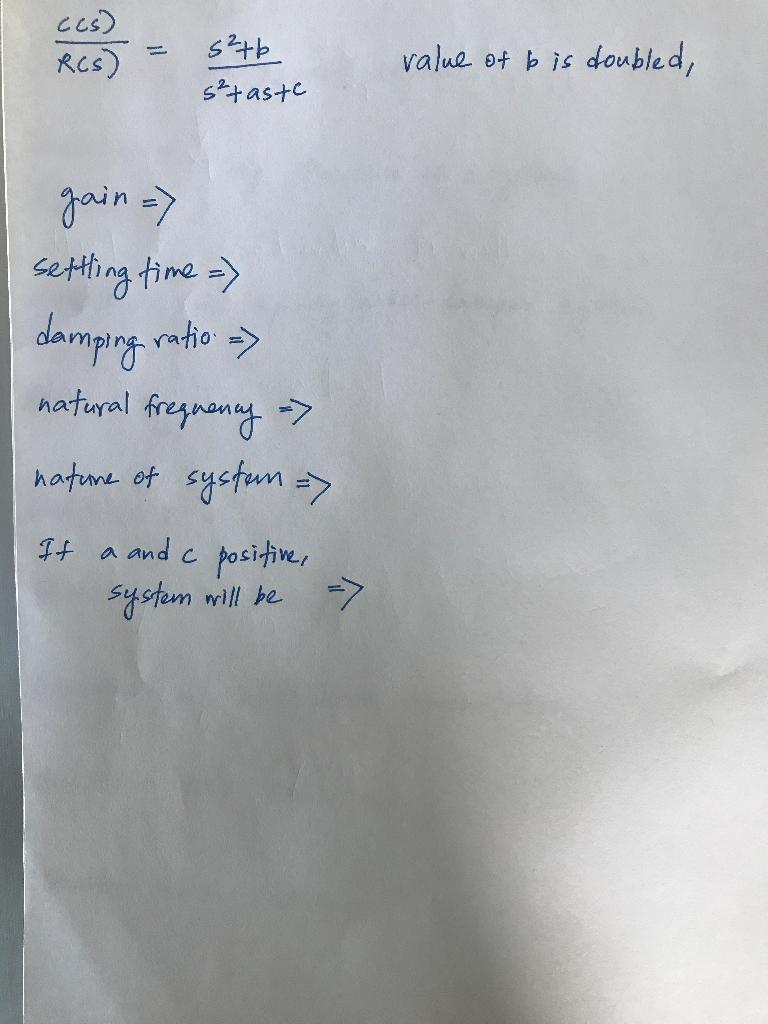 C(s)/R(s) = s²+b/s²+as+c value of b is doubled,
gain =>
settling time =>
damping ratio =>
natural frequency =>
nature of system =>
If a and c positive,
system will be =>